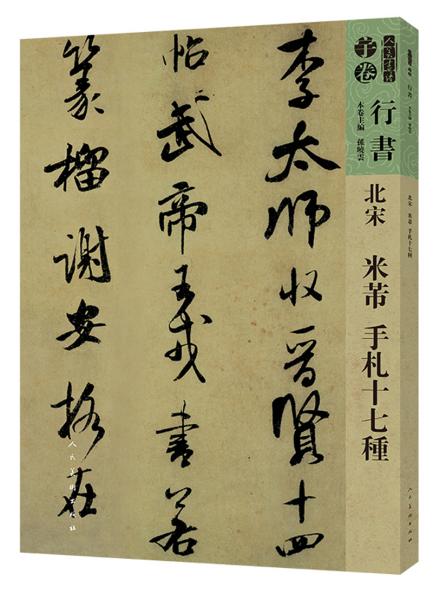 人美書譜
宇卷
行書
本卷主編 孫曉雲
北宋 米芾 手札十七種
李太師收晉賢十四
帖武帝王戎書若
篆榴謝安格在
人民美術出版社
行書
北宋 米芾 手札十七種
人民美術出版社